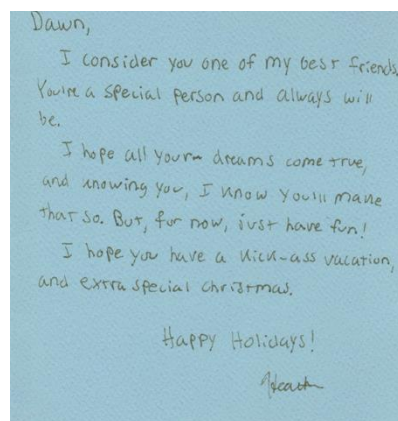 Dawn,
I consider you one of my best friends.
You're a special person and always will
be.
I hope all your dreams come true,
and knowing you, I know you'll make
that so. But, for now, just have fun!
I hope you have a kick-ass vacation,
and extra special christmas.
Happy Holidays!
Heath